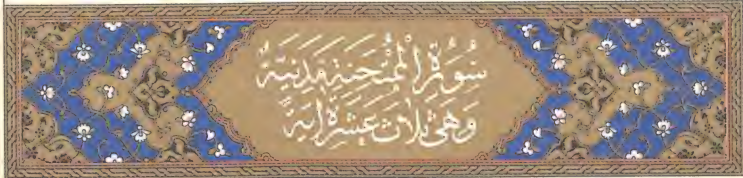 سُورَةُ الْمُمْتَحِنَةِ مَدَنِيَّةٌ
وَهِيَ ثَلَاثَ عَشَرَةَ آيَةً